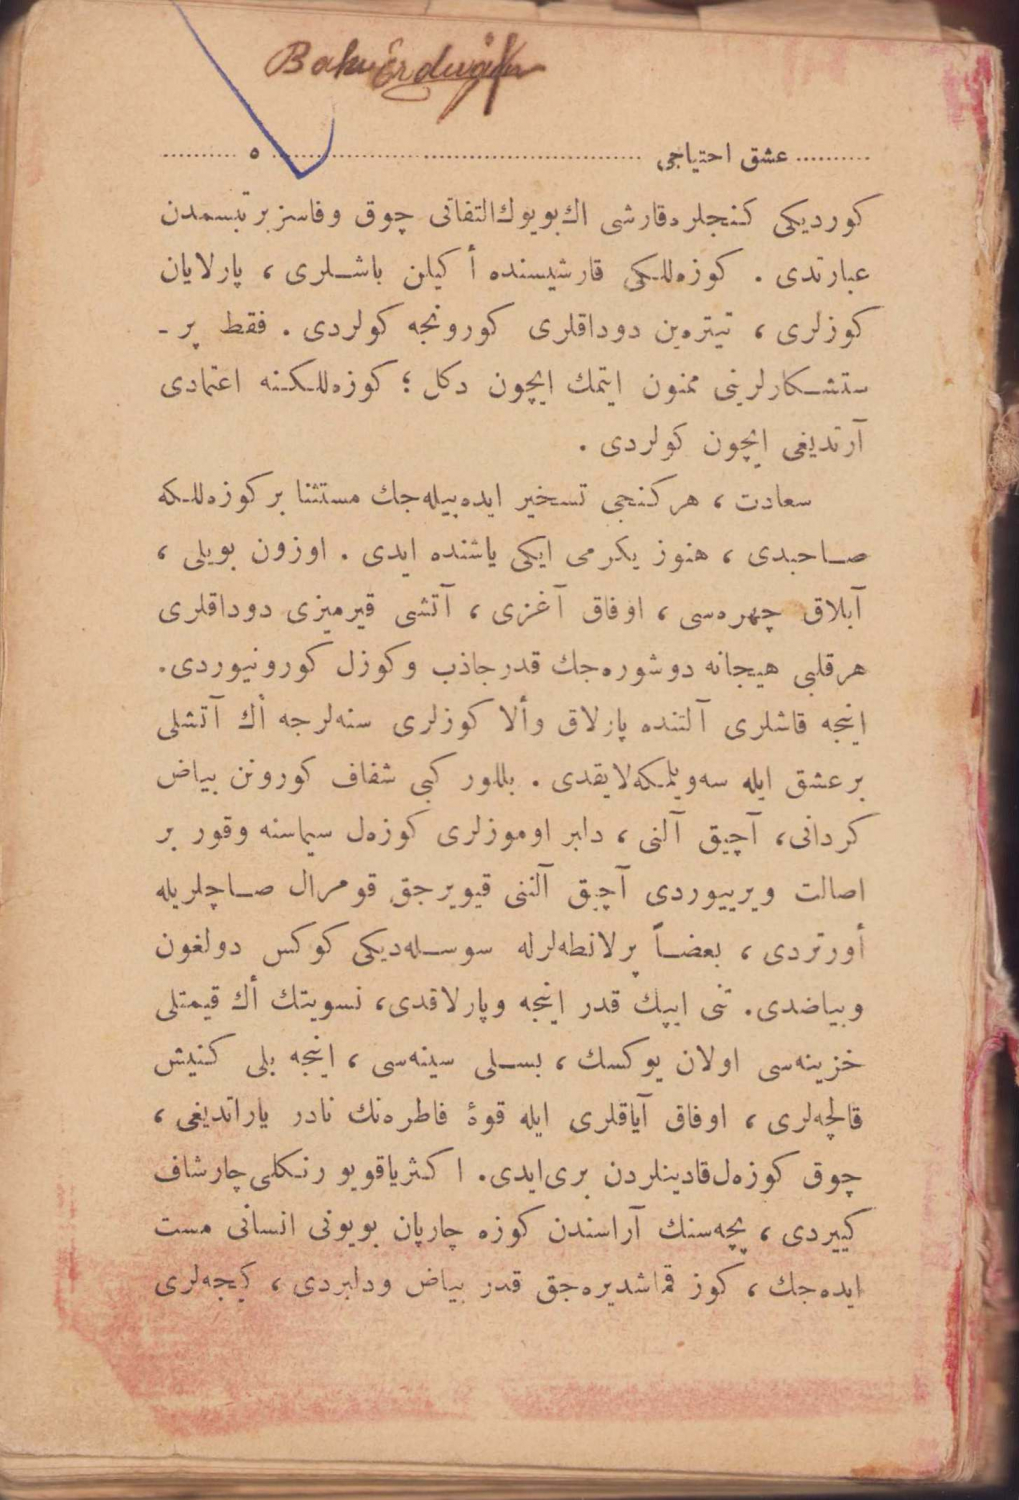 عشق احتیاجی ۵
كوردیكی كنجلره قارشی اك بویوك التفاتی چوق وفاسز بر تبسمدن
عبارتدی . كوزه‌للكی قارشیسنده أكیلن باشلری ، پارلایان
كوزلری ، تیتره‌ین دوداقلری كورونجه كولردی . فقط پر ـ
ستشكارلرینی ممنون ایتمك ایچون دكل ؛ كوزه‌للكنه اعتمادی
آرتدیغی ایچون كولردی .
سعادت ، هر كنجی تسخیر ایده‌بیله‌جك مستثنا بر كوزه‌للكه
صاحبدی ، هنوز یكرمی ایكی یاشنده ایدی . اوزون بویلی ،
آبلاق چهره‌سی ، اوفاق آغزی ، آتشی قیرمیزی دوداقلری
هر قلبی هیجانه دوشوره‌جك قدر جاذب و كوزل كورونیوردی .
اینجه قاشلری آلتنده پارلاق وألا كوزلری سنه‌لرجه أك آتشلی
بر عشق ایله سه‌ویلمكه لایقدی . بللور كبی شفاف كورونن بیاض
كردانی ، آچیق آلنی ، دلبر اوموزلری كوزه‌ل سیماسنه وقور بر
اصالت ویرییوردی آچیق آلننی قیویرجق قومرال صاچلریله
أورتردی ، بعضاً پرلانطه‌لرله سوسله‌دیكی كوكس دولغون
وبیاضدی . تنی ایپك قدر اینجه وپارلاقدی ، نسویتك أك قیمتلی
خزینه‌سی اولان یوكسك ، بسلی سینه‌سی ، اینجه بلی كنیش
قالچه‌لری ، اوفاق آیاقلری ایله قوهٔ فاطره‌نك نادر یاراتدیغی ،
چوق كوزه‌ل قادینلردن بری ایدی . اكثریا قویو رنكلی چارشاف
كییردی ، پچه‌سنك آراسندن كوزه چارپان بویونی انسانی مست
ایده‌جك ، كوز قماشدیره‌جق قدر بیاض ودلبردی ، كیجه‌لری